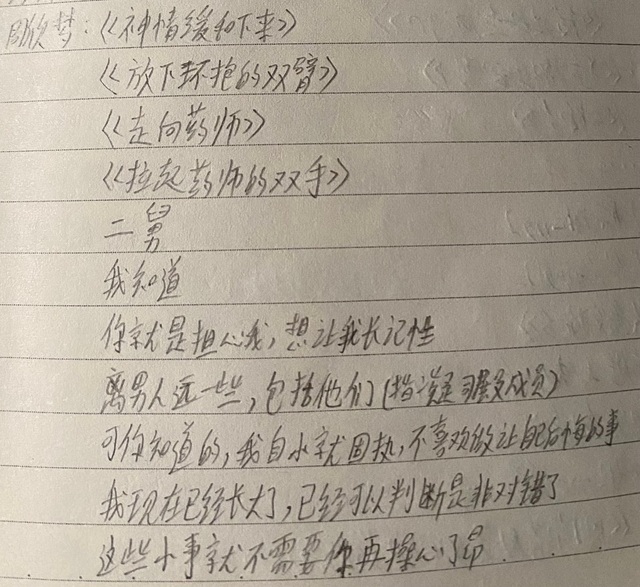 梦：《神情缓和下来》
《放下环抱的双臂》
《走向药师》
《拉起药师的双手》
二舅
我知道
你就是担心我，想让我长记性
离男人远一些，包括他们（指 成员）
可你知道的，我自小就固执，不喜欢做让自己后悔的事
我现在已经长大了，已经可以判断是非对错了
这些小事就不需要你再操心了昂